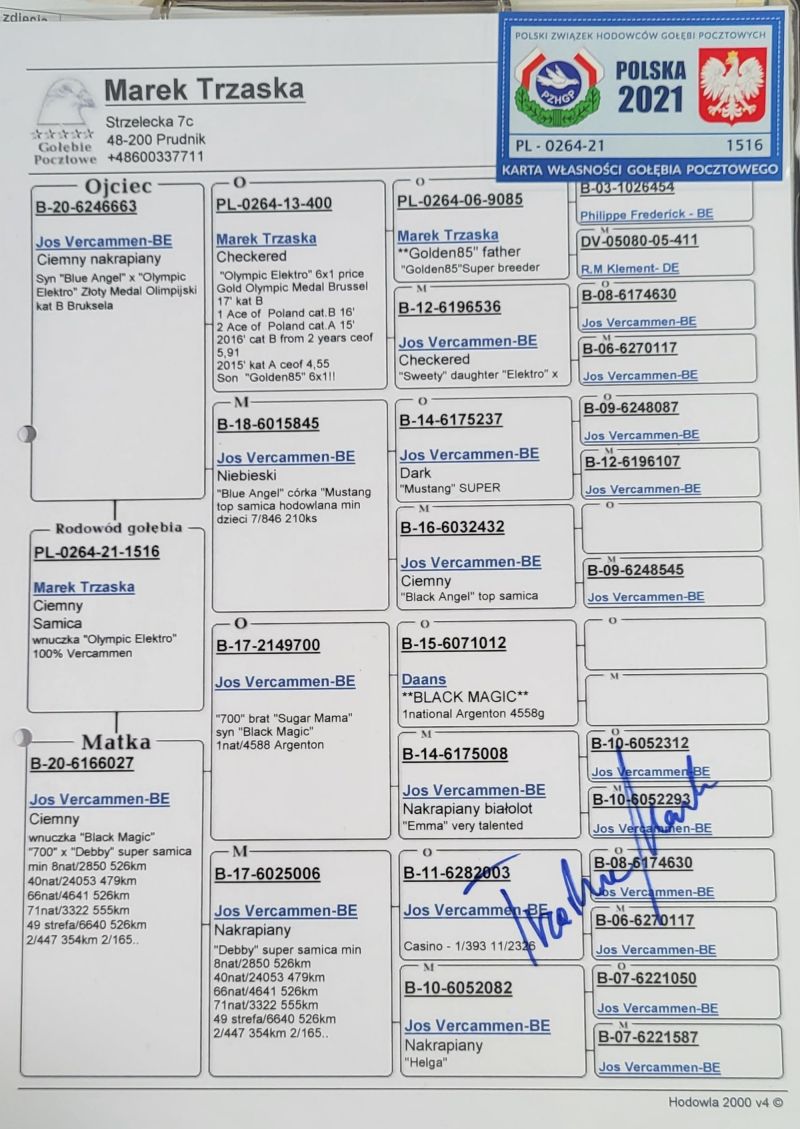 zdjęcia
POLSKI ZWIĄZEK HODOWCÓW GOŁĘBI POCZTOWYCH
PZHGP
POLSKA
2021
PL - 0264-21 1516
KARTA WŁASNOŚCI GOŁĘBIA POCZTOWEGO
Marek Trzaska
Strzelecka 7c
48-200 Prudnik
+48600337711
Gołębie
Pocztowe
Ojciec
B-20-6246663
Jos Vercammen-BE
Ciemny nakrapiany
Syn "Blue Angel" x "Olympic
Elektro" Złoty Medal Olimpijski
kat B Bruksela
Rodowód gołębia
PL-0264-21-1516
Marek Trzaska
Ciemny
Samica
wnuczka "Olympic Elektro"
100% Vercammen
Matka
B-20-6166027
Jos Vercammen-BE
Ciemny
wnuczka "Black Magic"
"700" x "Debby" super samica
min 8nat/2850 526km
40nat/24053 479km
66nat/4641 526km
71nat/3322 555km
49 strefa/6640 526km
2/447 354km 2/165..
O
PL-0264-13-400
Marek Trzaska
Checkered
"Olympic Elektro" 6x1 price
Gold Olympic Medal Brussel
17' kat B
1 Ace of Poland cat.B 16'
2 Ace of Poland cat.A 15'
2016' cat B from 2 years ceof
5,91
2015' kat A ceof 4,55
Son "Golden85" 6x1!!
M
B-18-6015845
Jos Vercammen-BE
Niebieski
"Blue Angel" córka "Mustang
top samica hodowlana min
dzieci 7/846 210ks
O
B-17-2149700
Jos Vercammen-BE
"700" brat "Sugar Mama"
syn "Black Magic"
1nat/4588 Argenton
M
B-17-6025006
Jos Vercammen-BE
Nakrapiany
"Debby" super samica min
8nat/2850 526km
40nat/24053 479km
66nat/4641 526km
71nat/3322 555km
49 strefa/6640 526km
2/447 354km 2/165..
O
PL-0264-06-9085
Marek Trzaska
**Golden85" father
"Golden85"Super breeder
M
B-12-6196536
Jos Vercammen-BE
Checkered
"Sweety" daughter "Elektro" x
O
B-14-6175237
Jos Vercammen-BE
Dark
"Mustang" SUPER
M
B-16-6032432
Jos Vercammen-BE
Ciemny
"Black Angel" top samica
O
B-15-6071012
Daans
**BLACK MAGIC**
1national Argenton 4558g
M
B-14-6175008
Jos Vercammen-BE
Nakrapiany białolot
"Emma" very talented
O
B-11-6282003
Jos Vercammen-BE
Casino - 1/393 11/2326
M
B-10-6052082
Jos Vercammen-BE
Nakrapiany
"Helga"
B-03-1026454
Philippe Frederick - BE
M
DV-05080-05-411
R.M Klement- DE
O
B-08-6174630
Jos Vercammen-BE
M
B-06-6270117
Jos Vercammen-BE
O
B-09-6248087
Jos Vercammen-BE
M
B-12-6196107
Jos Vercammen-BE
O
M
B-09-6248545
Jos Vercammen-BE
O
M
O
B-10-6052312
Jos Vercammen-BE
M
B-10-6052293
Jos Vercammen-BE
O
B-08-6174630
Jos Vercammen-BE
M
B-06-6270117
Jos Vercammen-BE
O
B-07-6221050
Jos Vercammen-BE
M
B-07-6221587
Jos Vercammen-BE
Trzaska Marek
Hodowla 2000 v4 ©